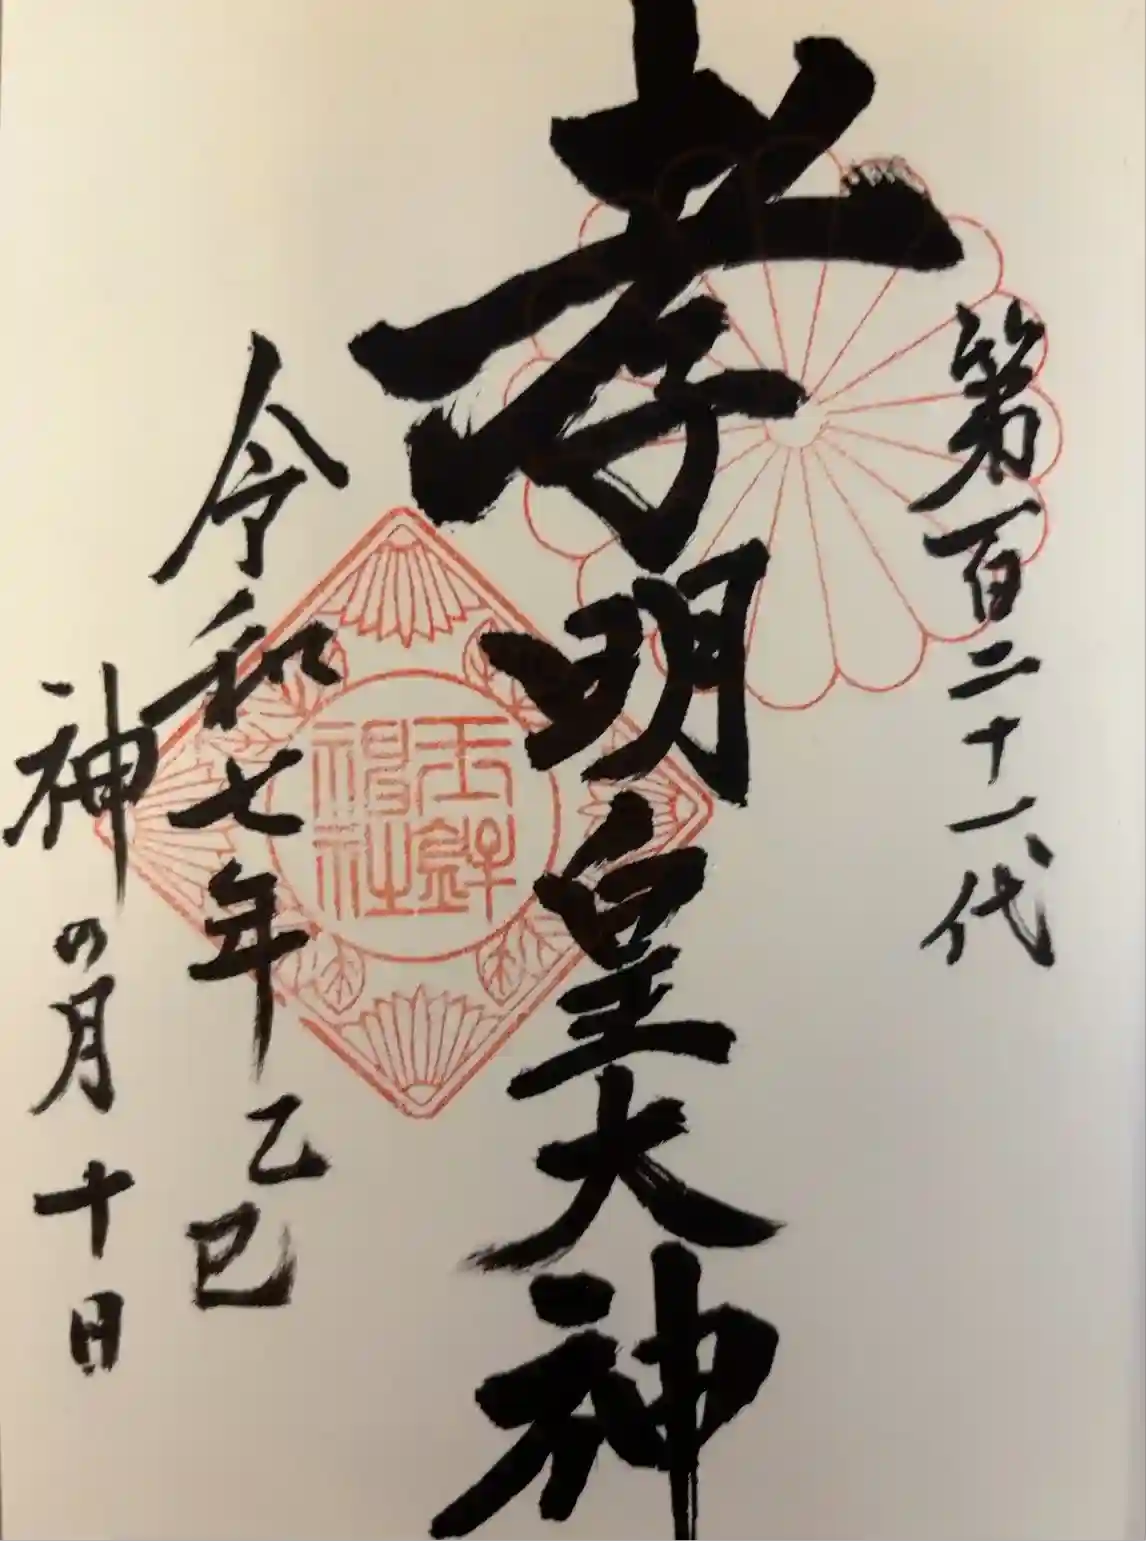 第百二十一代
孝明皇大神
令和七年乙巳
神の月十日
玉鉾
神社